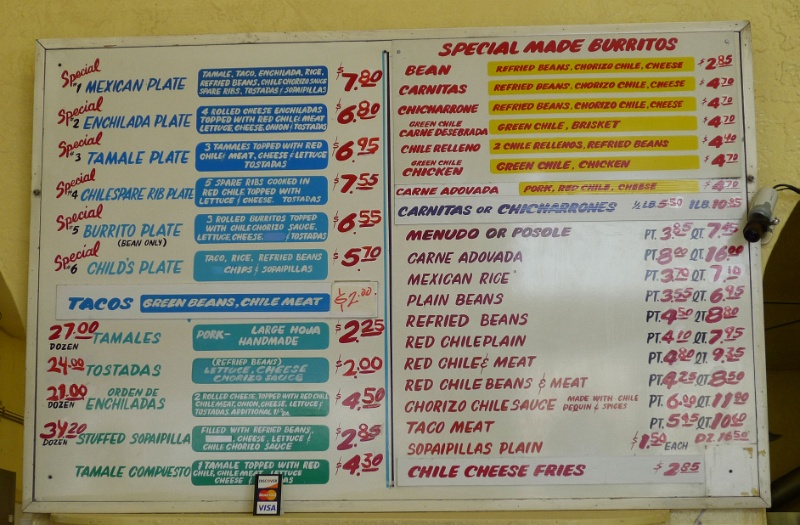 Special #1 MEXICAN PLATE
TAMALE, TACO, ENCHILADA, RICE,
REFRIED BEANS, CHILE CHORIZO SAUCE
SPARE RIBS, TOSTADAS & SOPAIPILLAS
$7.80
Special #2 ENCHILADA PLATE
4 ROLLED CHEESE ENCHILADAS
TOPPED WITH RED CHILE & MEAT
LETTUCE, CHEESE, ONION & TOSTADAS
$6.80
Special #3 TAMALE PLATE
3 TAMALES TOPPED WITH RED
CHILE & MEAT, CHEESE & LETTUCE
TOSTADAS
$6.95
Special #4 CHILE SPARE RIB PLATE
5 SPARE RIBS COOKED IN
RED CHILE TOPPED WITH
LETTUCE & CHEESE. TOSTADAS
$7.55
Special #5 BURRITO PLATE
(BEAN ONLY)
3 ROLLED BURRITOS TOPPED
WITH CHILE CHORIZO SAUCE,
LETTUCE, CHEESE & TOSTADAS
$6.55
Special #6 CHILD'S PLATE
TACO, RICE, REFRIED BEANS
CHIPS & SOPAIPILLAS
$5.70
TACOS GREEN BEANS, CHILE MEAT $2.00
27.00 DOZEN TAMALES
PORK- LARGE HOJA
HANDMADE
$2.25
24.00 TOSTADAS
(REFRIED BEANS)
LETTUCE, CHEESE
CHORIZO SAUCE
$2.00
DOZEN ORDEN DE
ENCHILADAS
2 ROLLED CHEESE, TOPPED WITH RED
CHILE MEAT, ONION, CHEESE, LETTUCE &
TOSTADAS ADDITIONAL
$4.50
34.20 DOZEN STUFFED SOPAIPILLA
FILLED WITH REFRIED BEANS,
CHEESE, LETTUCE &
CHILE CHORIZO SAUCE
$2.85
TAMALE COMPUESTO
1 TAMALE TOPPED WITH RED
CHILE, CHILE MEAT, LETTUCE
CHEESE
$4.30
DISCOVER
MasterCard
VISA
SPECIAL MADE BURRITOS
BEAN REFRIED BEANS, CHORIZO CHILE, CHEESE $2.85
CARNITAS REFRIED BEANS, CHORIZO CHILE, CHEESE $4.70
CHICHARRONE REFRIED BEANS, CHORIZO CHILE, CHEESE $4.70
GREEN CHILE
CARNE DESEBRADA GREEN CHILE, BRISKET $4.70
CHILE RELLENO 2 CHILE RELLENOS, REFRIED BEANS $4.40
GREEN CHILE
CHICKEN GREEN CHILE, CHICKEN $4.70
CARNE ADOVADA PORK, RED CHILE, CHEESE $4.70
CARNITAS OR CHICHARRONES ½ LB. 5.30 1 LB. 10.35
MENUDO OR POSOLE PT. 3.85 QT. 7.45
CARNE ADOVADA PT. 8.00 QT. 16.00
MEXICAN RICE PT. 3.70 QT. 7.10
PLAIN BEANS PT. 3.55 QT. 6.95
REFRIED BEANS PT. 4.50 QT. 8.80
RED CHILE PLAIN PT. 4.10 QT. 7.95
RED CHILE & MEAT PT. 4.80 QT. 9.35
RED CHILE BEANS & MEAT PT. 4.25 QT. 8.50
CHORIZO CHILE SAUCE MADE WITH CHILE
PEQUIN & SPICES PT. 6.00 QT. 11.00
TACO MEAT PT. 5.45 QT. 10.60
SOPAIPILLAS PLAIN $1.50 EACH DZ. 16.50
CHILE CHEESE FRIES $2.85